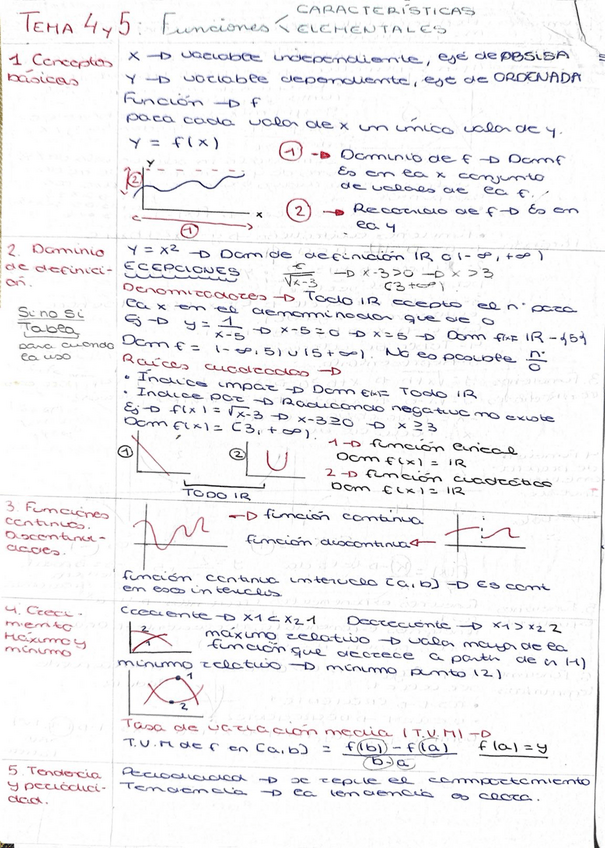 CARACTERÍSTICAS
TEMA 4 y 5: Funciones < ELEMENTALES
1 Conceptos básicos
X → variable independiente, eje de ABSISA
Y → variable dependiente, eje de ORDENADA
Función → f
para cada valor de x un único valor de y.
Y = f(x)
① → Dominio de f → Domf
Es en la x conjunto
de valores de la f.
② → Recorrido de f → Es en
la y
Y
②
x
①
2. Dominio
de definici-
ón.
Y = x² → Dom de definición IR o (-∞, +∞)
ECEPCIONES
√x-3 → x-3>0 → x>3
(3+∞)
Denominadores → Todo IR ecepto el nº para
la x en el denominador que de 0
Ej → y = 1/x-5 → x-5=0 → x=5 → Dom f(x)= IR - {5}
Dom f = (-∞, 5) U (5+∞). No es posible nº/0
Si no si
Tabla
para cuando
la uso
Raíces cuadradas →
• Índice impar → Dom f(x)= Todo IR
• Indice par → Radicando negativo no existe
Ej → f(x) = √x-3 → x-3≥0 → x≥3
Dom f(x) = [3, +∞)
①
②
TODO IR
1 → función lineal
Dom f(x) = IR
2 → función cuadrática
Dom f(x) = IR
3. Funciones
continuas.
Discontinui-
dades.
→ función continua
función discontinua ←
función continua intervalo [a,b] → Es cont
en esos intervalos
4. Creci-
miento
Máximo y
mínimo
Creciente → x1 < x2 1
Decreciente → x1 > x2 2
2
1
máximo relativo → valor mayor de la
función que decrece a partir de n (1)
mínimo relativo → mínimo punto (2)
1
2
Tasa de variación media (T.V.M) →
T.V.M de f en [a,b] = f(b) - f(a) / b-a
f(a) = y
5. Tendencia
y periodici-
dad.
Periodicidad → se repite el comportamiento
Tendencia → la tendencia es clara.